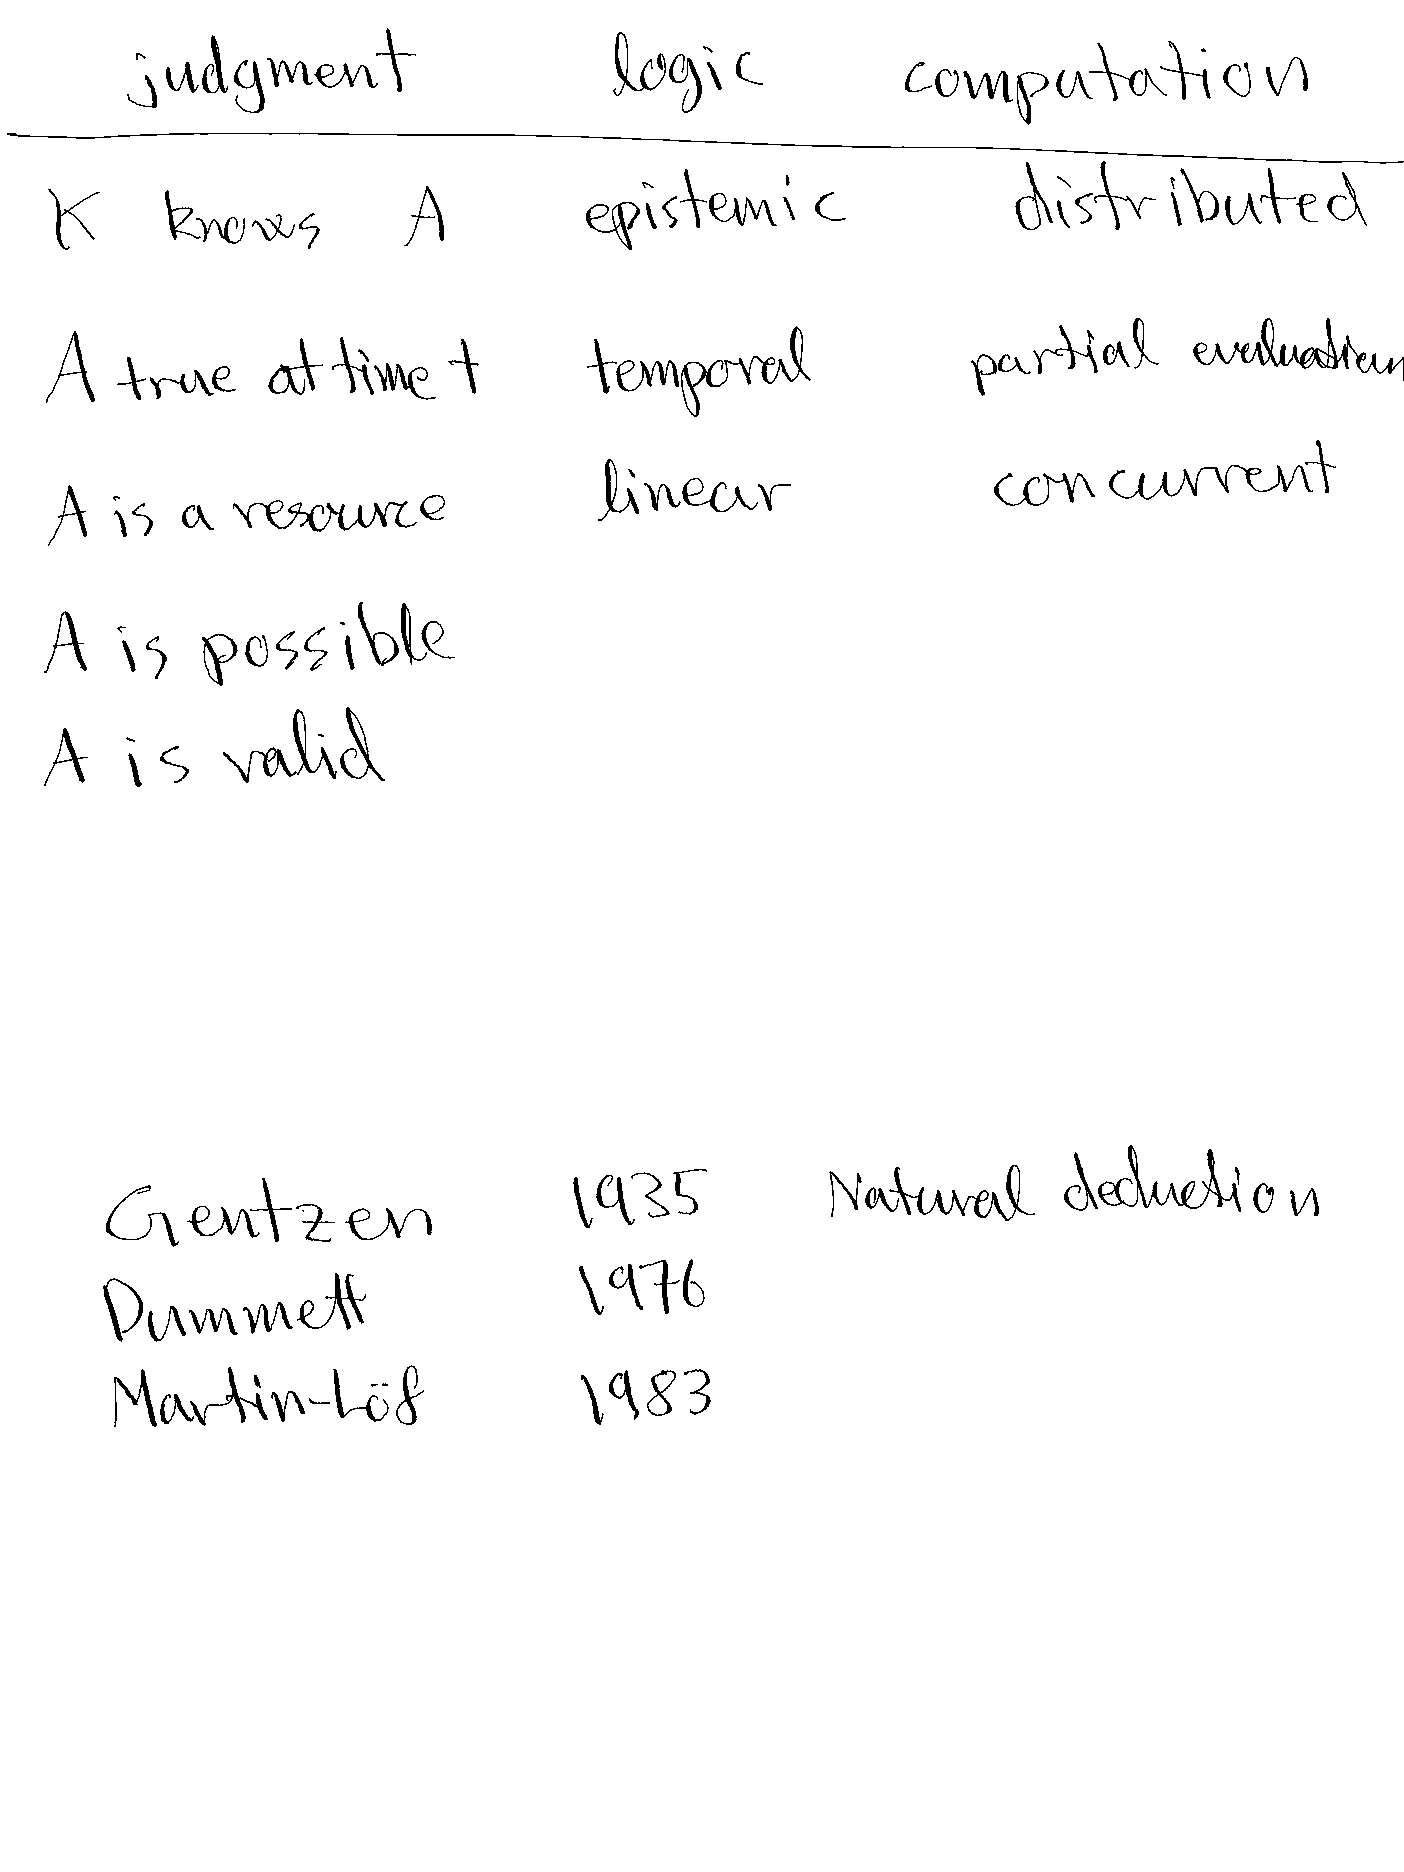 judgment logic computation
K knows A epistemic distributed
A true at time t temporal partial evaluation
A is a resource linear concurrent
A is possible
A is valid
Gentzen 1935 Natural deduction
Dummett 1976
Martin-Löf 1983